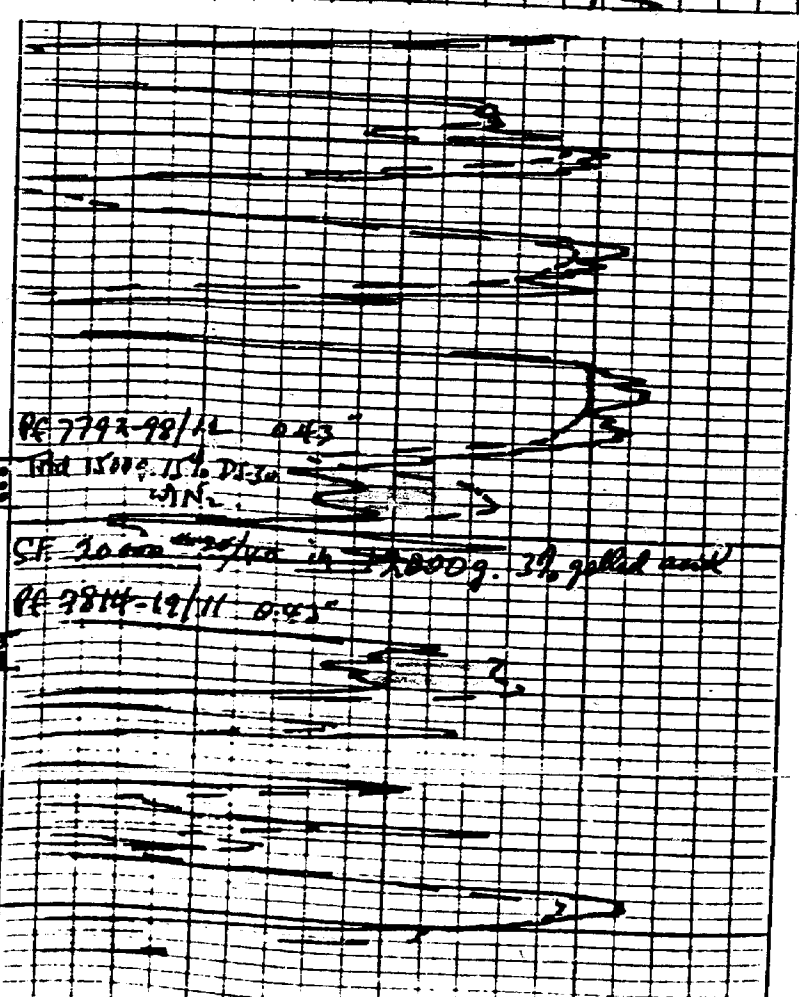 Pf 7792-98/ 0.43"
Trtd 1500g. 15% DS-30
w/N₂
S.F. 20000 /40 in 2000g. 3% gelled acid
Pf 7814-19/11 0.43"